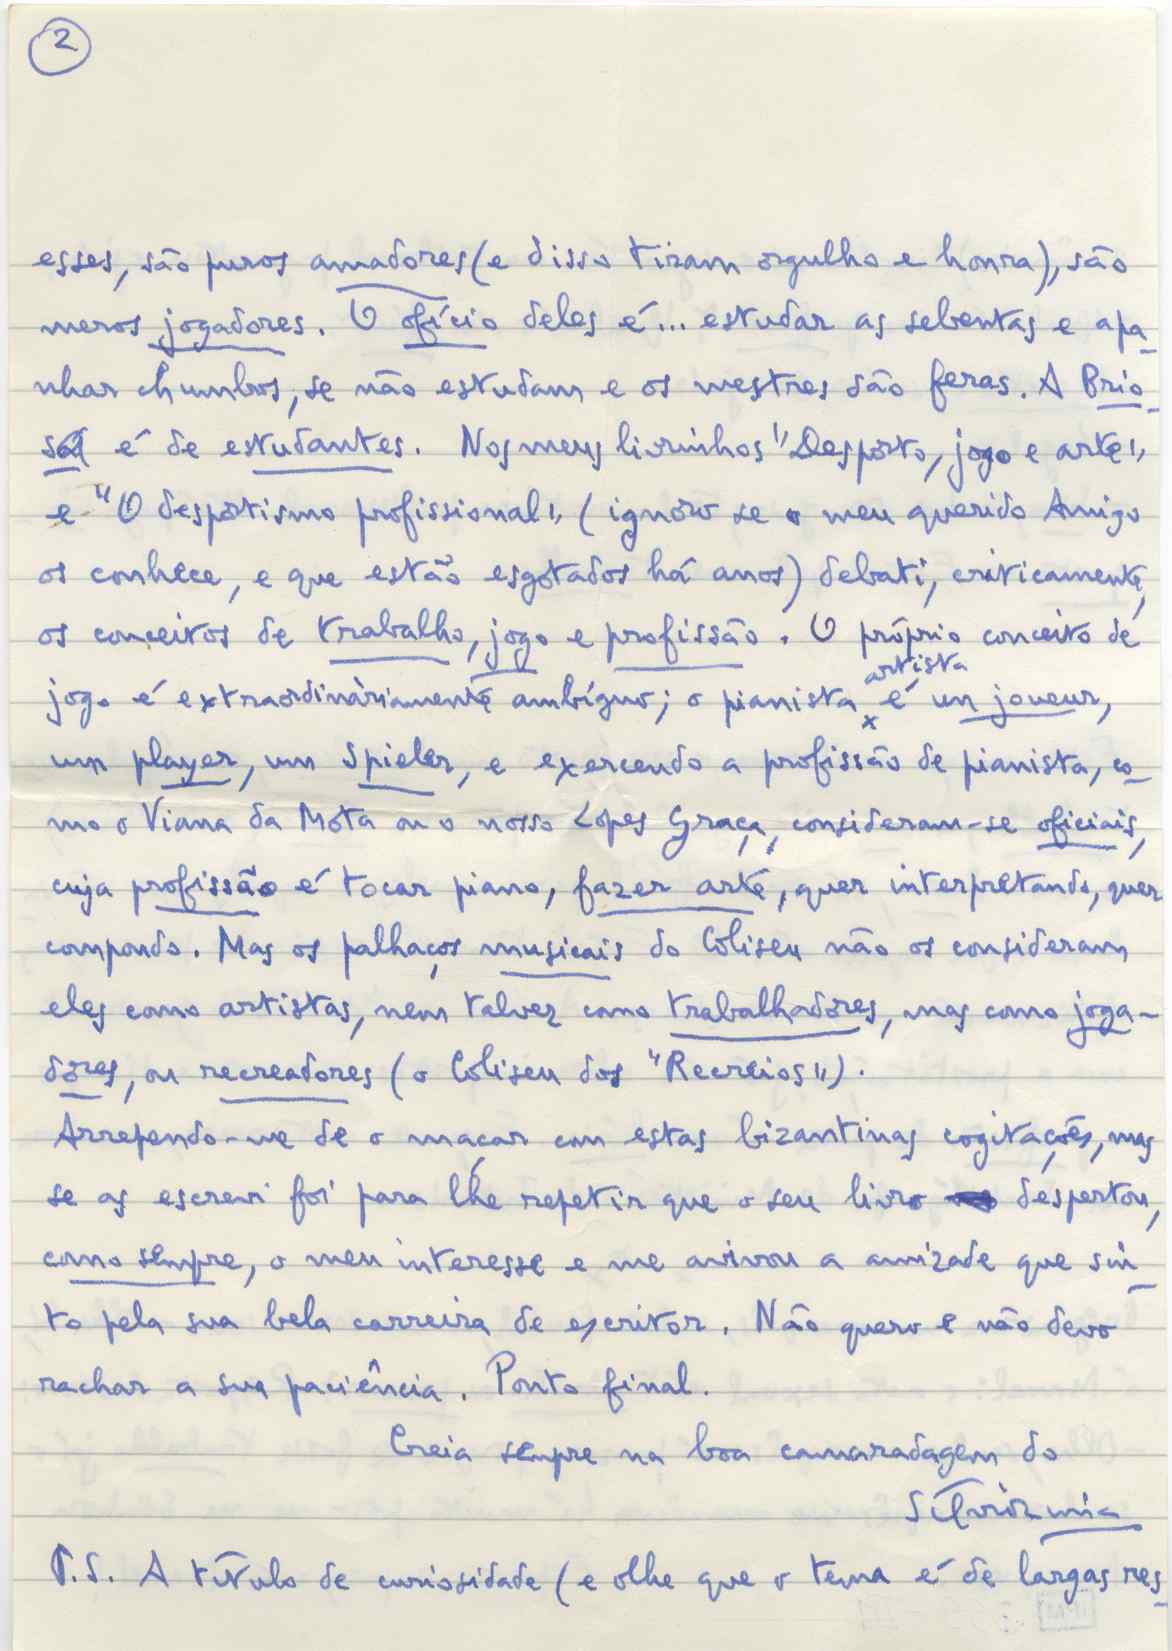 2
esses, são puros amadores (e disso tiram orgulho e honra), são
meros jogadores. O ofício deles é... estudar as sebentas e apa-
nhar chumbos, se não estudam e os mestres são feras. A Brio-
sa é de estudantes. Nos meus livrinhos "Desporto, jogo e arte"
e "O desportismo profissional" (ignoro se o meu querido Amigo
os conhece, e que estão esgotados há anos) debati, criticamente,
os conceitos de trabalho, jogo e profissão. O próprio conceito de
artista
jogo é extraordinàriamente ambíguo; o pianista x é un joueur,
um player, um Spieler, e exercendo a profissão de pianista, co-
mo o Viana da Mota ou o nosso Lopes Graça, consideram-se oficiais,
cuja profissão é tocar piano, fazer arte, quer interpretando, quer
compondo. Mas os palhaços musicais do Coliseu não os consideram
eles como artistas, nem talvez como trabalhadores, mas como joga-
dores, ou recreadores (o Coliseu dos "Recreios").
Arrependo-me de o maçar com estas bizantinas cogitações, mas
se as escrevi foi para lhe repetir que o seu livro despertou,
como sempre, o meu interesse e me avivou a amizade que sin-
to pela sua bela carreira de escritor. Não quero e não devo
rachar a sua paciência. Ponto final.
Creia sempre na boa camaradagem do
P.S. A título de curiosidade (e olhe que o tema é de largas res-